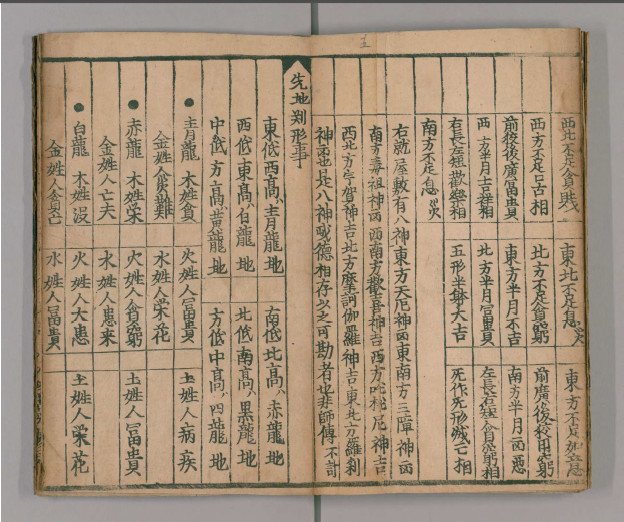 西北不足貪賎 東北不足急災 東方不足如意
西方不足吉相 北方不足貧窮 前廣後挍困窮
前挍後廣冨貴 東方半月不吉 南方半月凶悪
西方半月吉祥相 北方半月冨貴 左長右短貧窮相
右長左短歡樂相 五形半缺大吉 死作死形滅亡相
南方不足急災
右就屋敷有八神東方天尼神凶東南方三障神凶
南方毒祖神凶西南方歡喜神吉西方咤枳尼神吉
西北方宇賀神吉北方摩訶伽羅神吉東北方羅刹
神凶也是八神或德相存以之可勘者也非師傳不計
先地判形事
東低西髙青龍地 南低北髙赤龍地
西低東髙白龍地 北低南髙黒龍地
中低方髙黄龍地 方低中髙四龍地
青龍 木姓人貧 火姓人冨貴 土姓人病疾
金姓人貧難 水姓人栄花
赤龍 木姓栄 火姓人貧窮 土姓人冨貴
金姓人亡夫 水姓人患来
白龍 木姓没 火姓人大患 土姓人栄花
金姓人貧亡 水姓人冨貴